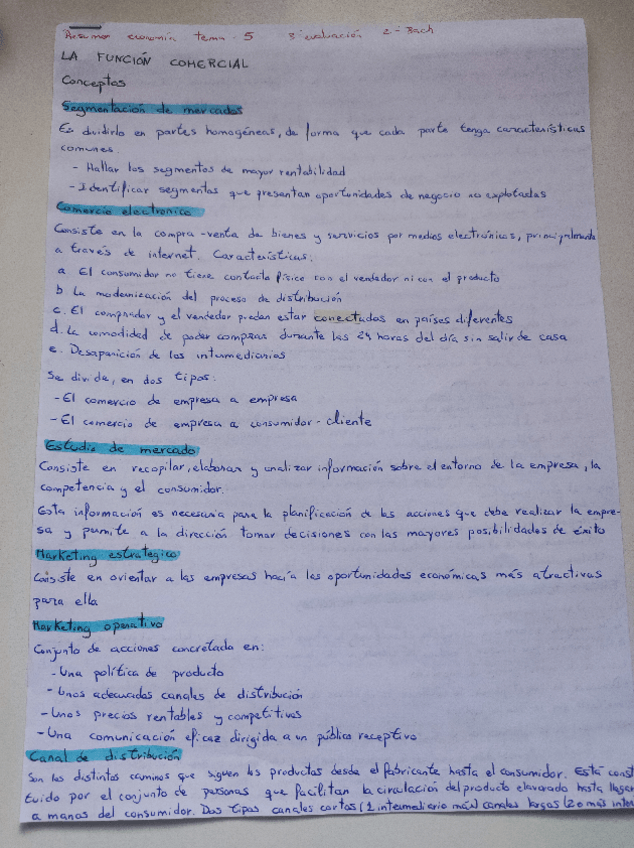 Resumen economía tema 5 3ª evaluación 2º Bach
LA FUNCIÓN COMERCIAL
Conceptos
Segmentación de mercados
Es dividirlo en partes homogéneas, de forma que cada parte tenga características
comunes.
- Hallar los segmentos de mayor rentabilidad
- Identificar segmentos que presentan oportunidades de negocio no explotadas
Comercio electronico
Consiste en la compra-venta de bienes y servicios por medios electrónicos, principalmente
a través de internet. Características:
a. El consumidor no tiene contacto físico con el vendedor ni con el producto
b. La modernización del proceso de distribución
c. El comprador y el vendedor puedan estar conectados en países diferentes
d. La comodidad de poder comprar durante las 24 horas del día sin salir de casa
e. Desaparición de los intermediarios
Se divide, en dos tipos:
- El comercio de empresa a empresa
- El comercio de empresa a consumidor-cliente
Estudio de mercado
Consiste en recopilar, elaborar y analizar información sobre el entorno de la empresa, la
competencia y el consumidor.
Esta información es necesaria para la planificación de las acciones que debe realizar la empre-
sa y permite a la dirección tomar decisiones con las mayores posibilidades de éxito
Marketing estrategico
Consiste en orientar a las empresas hacia las oportunidades económicas más atractivas
para ella
Marketing operativo
Conjunto de acciones concretada en:
- Una política de producto
- Unos adecuados canales de distribución
- Unos precios rentables y competitivos
- Una comunicación eficaz dirigida a un público receptivo
Canal de distribución
Son los distintos caminos que siguen los productos desde el fabricante hasta el consumidor. Está const
tuido por el conjunto de personas que facilitan la circulación del producto elavorado hasta llegar
a manos del consumidor. Dos tipos canales cortos (1 intermediario máx) canales largos (2 o más inter